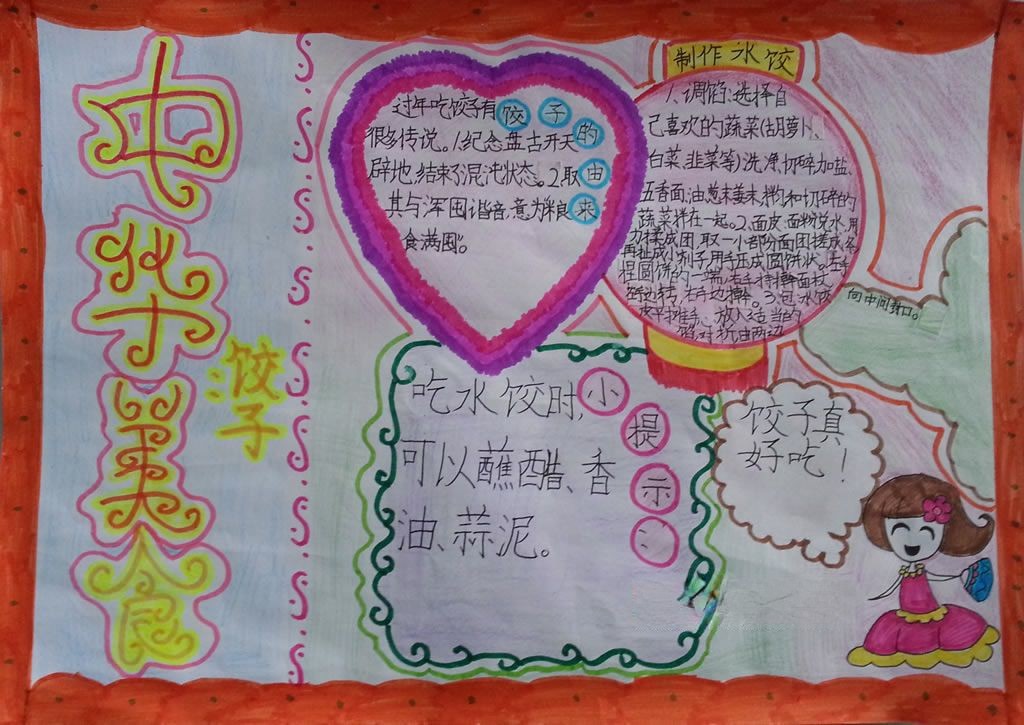 中华美食
饺子
饺子的由来
过年吃饺子有
很多传说。1.纪念盘古开天
辟地,结束了混沌状态。2.取
其与浑囤谐音,意为粮
食满囤。
制作水饺
1、调馅:选择自
己喜欢的蔬菜(胡萝卜、
白菜、韭菜等)洗净,切碎,加盐、
五香面、油、葱末、姜末,拌匀和切碎的
蔬菜拌在一起。2、面皮:面粉兑水,用
力揉成团,取一小部分面团搓成条
再扯成小剂子,用手压成圆饼状。左手
捏圆饼的一端,右手持擀面杖
右手边擀。3、包水饺
放入适当的
馅,对折,由两边
向中间封口。
小提示:
吃水饺时,
可以蘸醋、香
油、蒜泥。
饺子真
好吃!